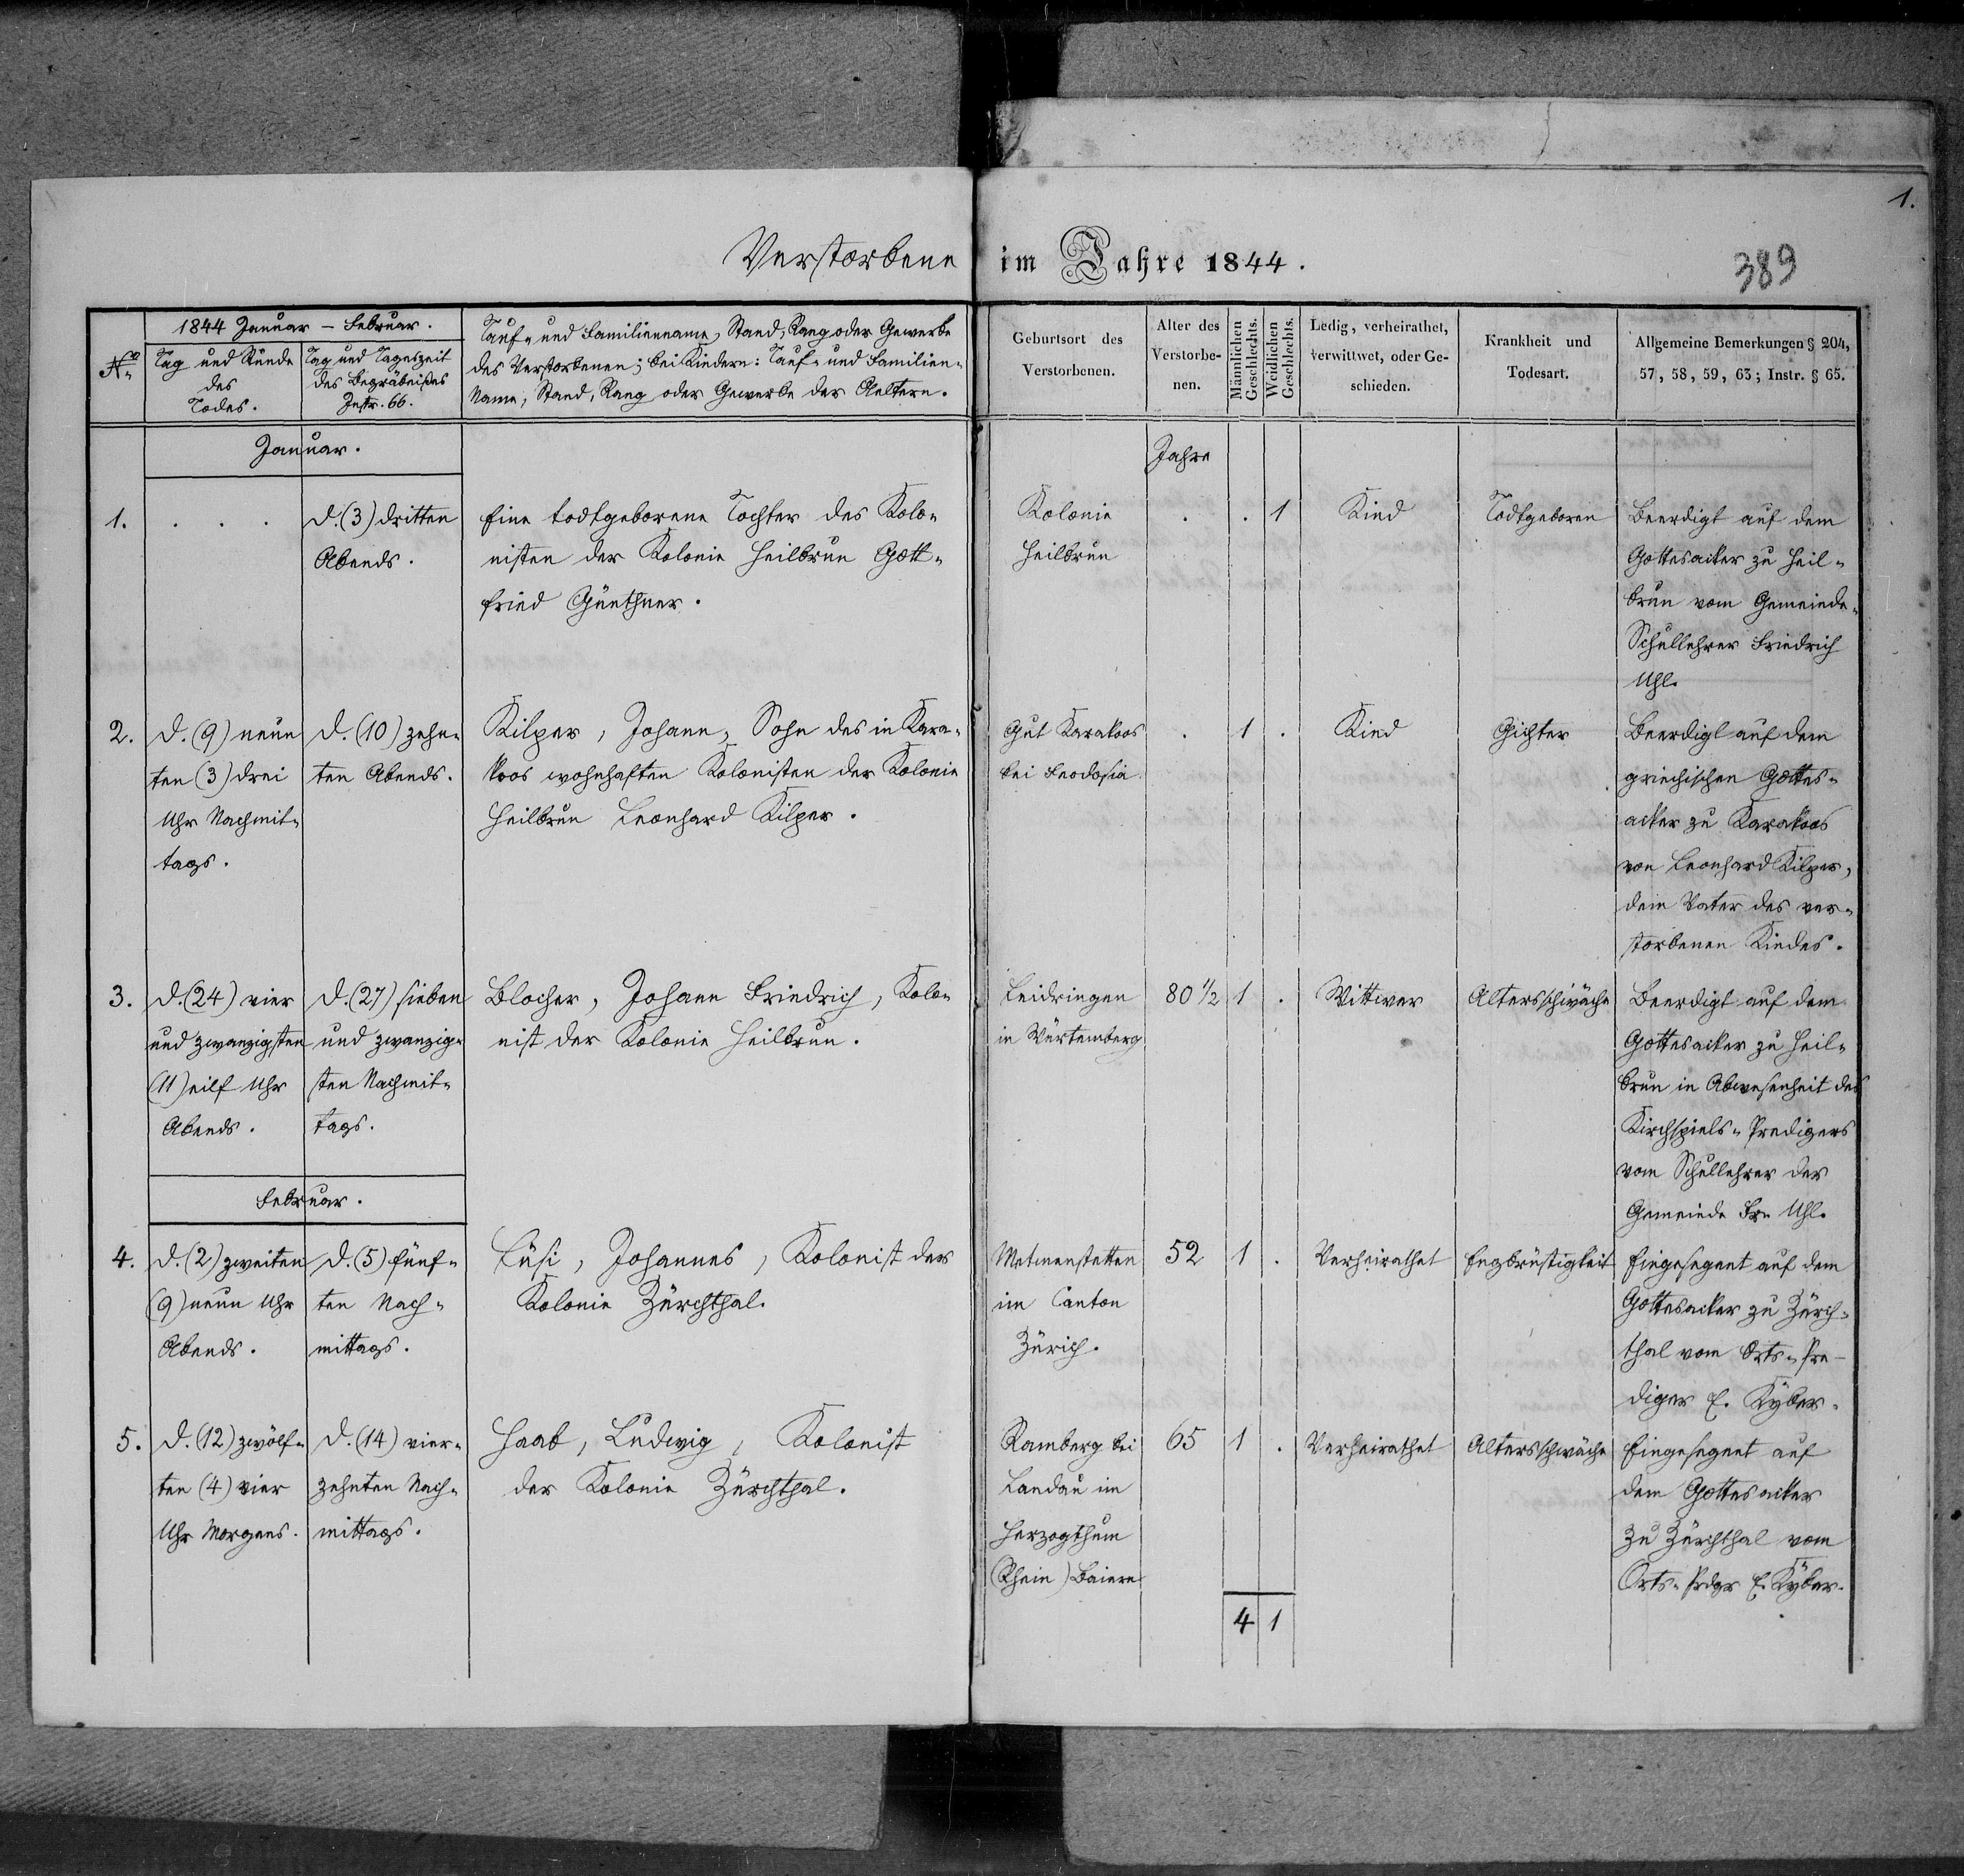 1.
Verstorbene im Jahre 1844.
389
No
1844 Januar – Februar.
Tag und Stunde
des
Todes.
Tag und Tageszeit
des Begräbnißes
Instr. 66.
Tauf- und Familienname, Stand, Rang oder Gewerbe
des Verstorbenen; bei Kindern: Tauf- und Familien-
Name, Stand, Rang oder Gewerbe der Aeltern.
Geburtsort des
Verstorbenen.
Alter des
Verstorbe-
nen.
Männlichen
Geschlechts.
Weiblichen
Geschlechts.
Ledig, verheirathet,
verwittwet, oder Ge-
schieden.
Krankheit und
Todesart.
Allgemeine Bemerkungen § 204,
57, 58, 59, 63; Instr. § 65.
Januar.
Jahre
1.
. . .
d. (3) dritten
Abends.
Eine todtgeborene Tochter des Kolo-
nisten der Kolonie Heilbrun Gott-
fried Günthner.
Kolonie
Heilbrun
.
.
1
Kind
Todtgeboren
Beerdigt auf dem
Gottesacker zu Heil-
brun vom Gemeinde-
Schullehrer Friedrich
Uhl.
2.
d. (9) neun
ten (3) drei
Uhr Nachmit-
tags.
d. (10) zehn-
ten Abends.
Kilper, Johann, Sohn des in Kara-
koos wohnhaften Kolonisten der Kolonie
Heilbrun Leonhard Kilper.
Gut Karakoos
bei Feodosia
.
1
.
Kind
Gichter
Beerdigt auf dem
griechischen Gottes-
acker zu Karakoos
von Leonhard Kilper,
dem Vater des ver-
storbenen Kindes.
3.
d. (24) vier
und zwanzigsten
(11) eilf Uhr
Abends.
d. (27) sieben
und zwanzig-
sten Nachmit-
tags.
Blocher, Johann Friedrich, Kolo-
nist der Kolonie Heilbrun.
Leidringen
in Würtemberg
80 1/2
1
.
Wittwer
Altersschwäche
Beerdigt auf dem
Gottesacker zu Heil-
brun in Abwesenheit des
Kirchspiels-Predigers
vom Schullehrer der
Gemeinde Fr. Uhl.
Februar.
4.
d. (2) zweiten
(9) neun Uhr
Abends.
d. (5) fünf-
ten Nach-
mittags.
Lüsi, Johannes, Kolonist der
Kolonie Zürchthal.
Metmenstetten
im Canton
Zürich.
52
1
.
Verheirathet
Engbrüstigkeit
Eingesegnet auf dem
Gottesacker zu Zürch-
thal vom Orts-Pre-
diger E. Kyber.
5.
d. (12) zwölf-
ten (4) vier
Uhr Morgens.
d. (14) vier-
zehnten Nach-
mittags.
Haab, Ludwig, Kolonist
der Kolonie Zürchthal.
Ramberg bei
Landau im
Herzogthum
(Rhein) Baiern
65
1
.
Verheirathet
Altersschwäche
Eingesegnet auf
dem Gottesacker
zu Zürchthal vom
Orts-Prdgr E. Kyber.
4
1